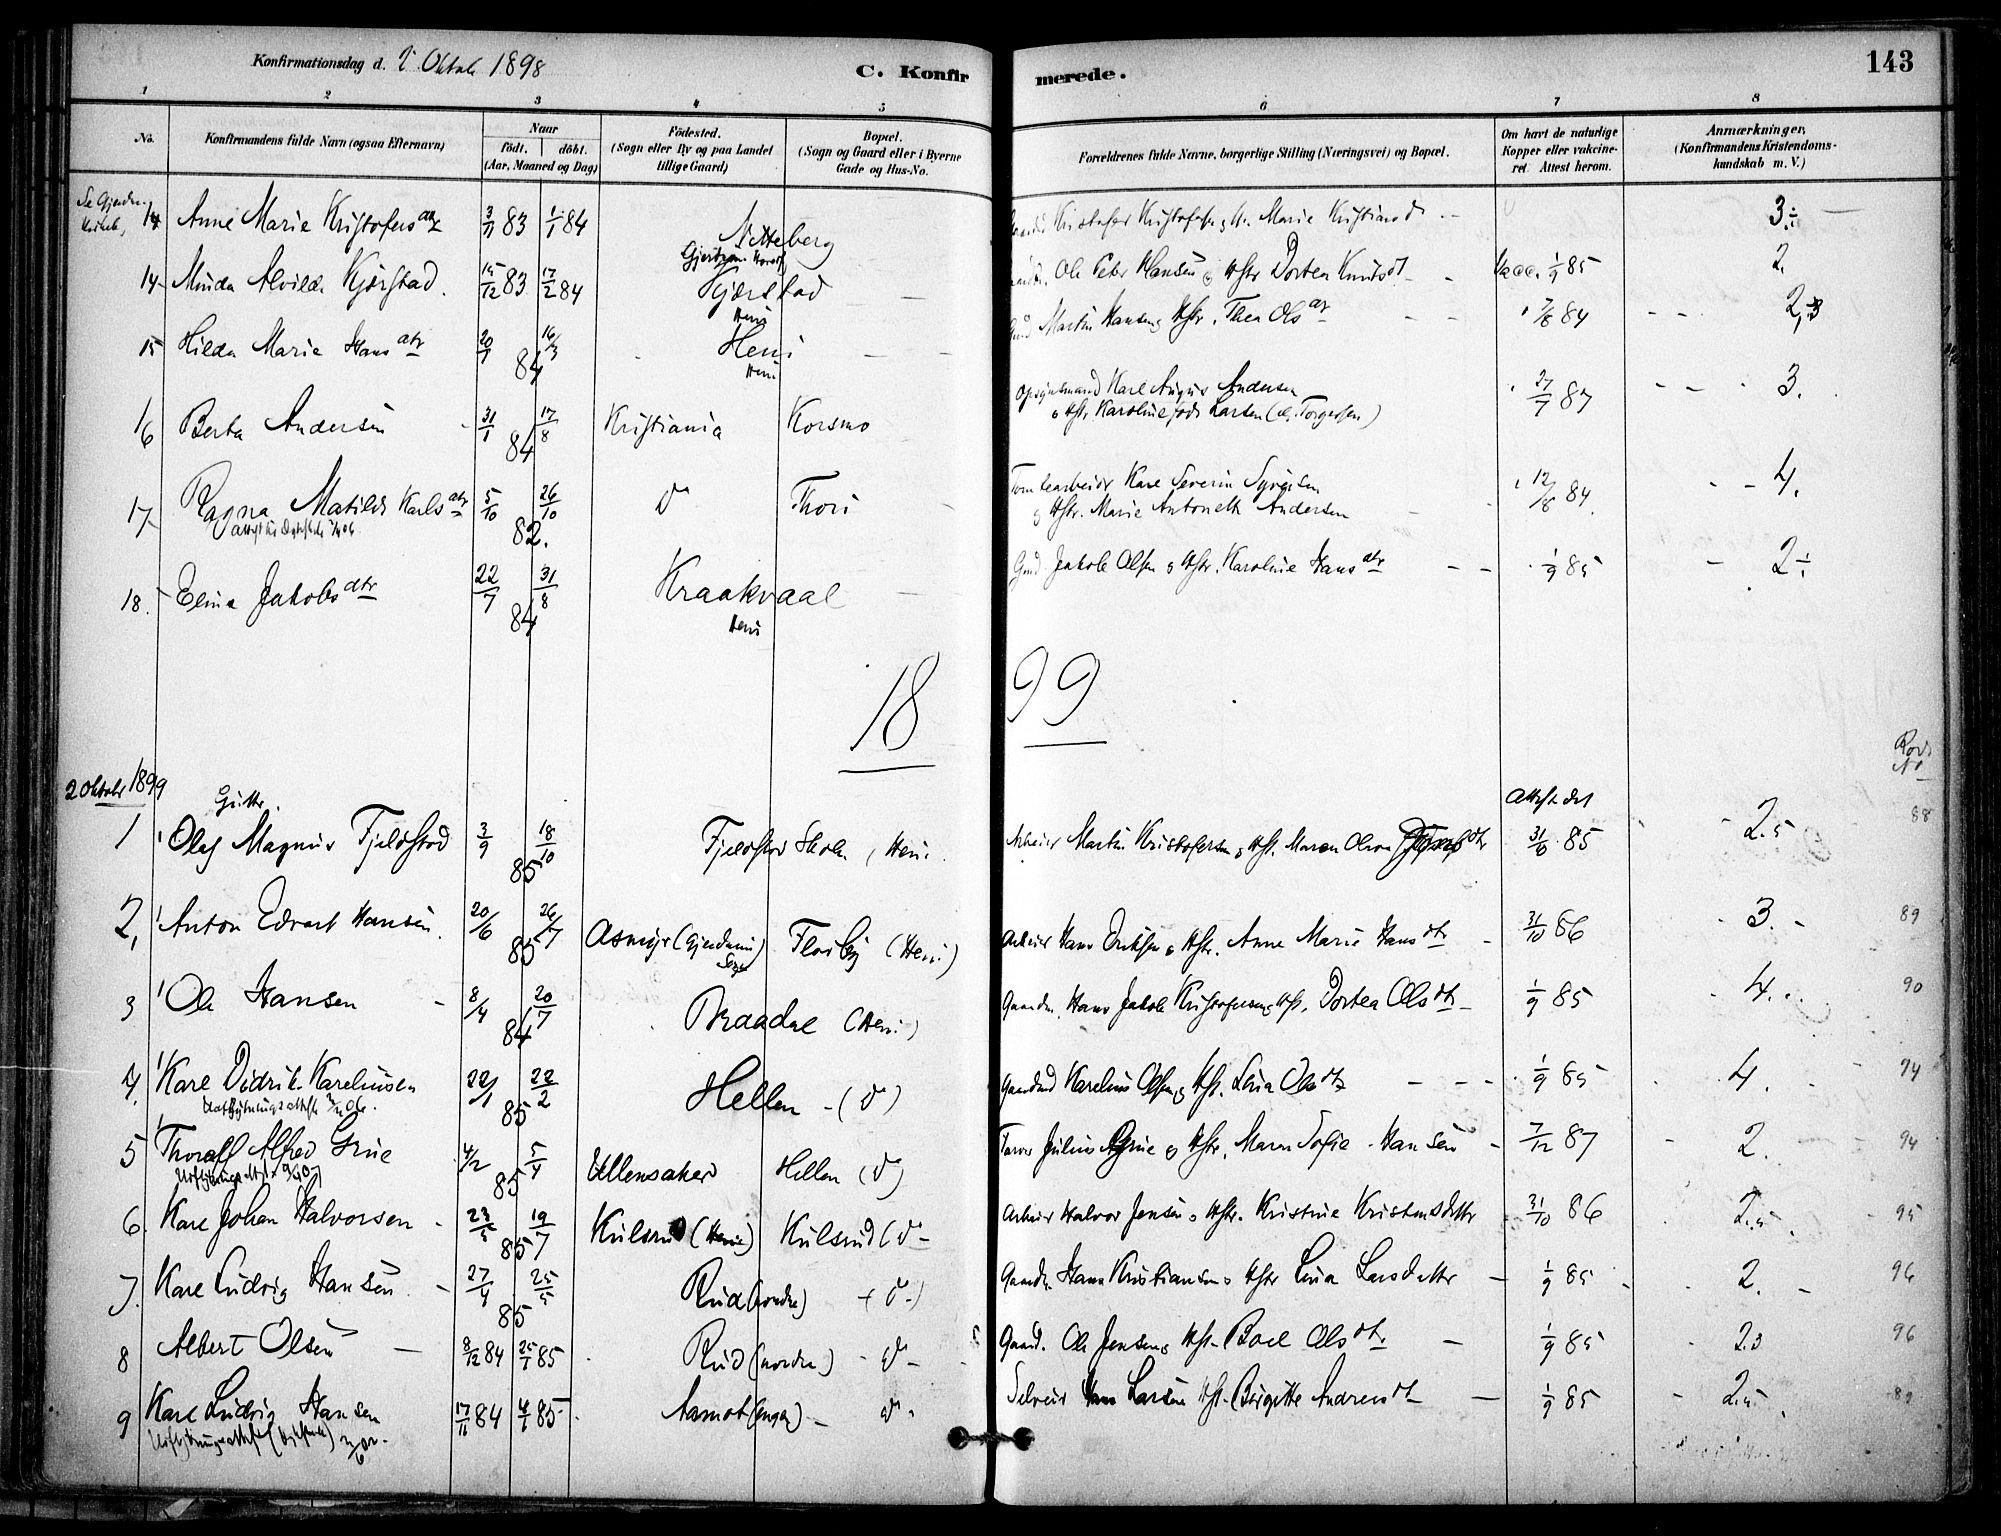 Konfirmationsdag d. 2 Oktob 1898
C. Konfirmerede.
143
1 2 3 4 5 6 7 8
No.
Konfirmandens fulde Navn (ogsaa Efternavn)
Naar
födt. döbt.
(Aar, Maaned og Dag)
Födested.
(Sogn eller By og paa Landet
tillige Gaard)
Bopæl.
(Sogn og Gaard eller i Byerne
Gade og Hus-No.
Forældrenes fulde Navne, borgerlige Stilling (Næringsvei) og Bopæl.
Om havt de naturlige
Kopper eller vakcine-
ret. Attest herom.
Anmærkninger,
(Konfirmandens Kristendoms-
kundskab m. V.)
Anne Marie Kristofersdtr 3/11 83 1/1 84 Netteberg Kristofer Kristofersen Marie Kristiansdt 3.÷
14 Minda Alvilda Kjærstad 15/12 83 17/2 84 Kjærstad Heni Ole Peter Hansen & Hstr Dortea Knutsdt Vacc. 1/9 85 2.
15 Hilda Marie Hansdtr 20/1 16/3 84 Heni Heni Martin Hansen Hstr. Thea Olsdtr 7/8 84
16 Berta Andersen 31/1 17/8 84 Kristiania Korsmo Opsynsmand Karl August Andersen
& Hstr. Karoline föds Larsen (el. Torgersen) 27/7 87 3.
17 Ragna Matilde Karlsdtr 5/10 26/10 82. do Thori Tomtearbeider Karl Severin Syversen
& Hstr. Marie Antonette Andersen 12/8 84. 4.
18. Elina Jakobsdtr 22/7 31/8 84 Kraakvaal Heni Gmd Jakob Olsen & Hstr. Karoline Hansdtr 1/9 85 2÷
18 99
2 Oktobr 1899
Gutter.
Attest dat
1 Olaf Magnus Fjeldstad 3/9 18/10 85 Fjeldstad Skole, Heni. Arbeider Martin Kristofersen & Hst. Maren Olsen 31/8 85 2.5 88
2, Anton Edvart Hansen. 20/6 26/7 85 Asmyr (Gjerdrum) Flatby (Heni) Arbeider Hans Eriksen & Hstr. Anne Marie Hansdtr 31/10 86 3. 89
3 Ole Hansen 8/4 20/7 84 Braadal (Heni) Gaardm. Hans Jakob Kristofersen & Hst. Dortea Olsdtr 1/9 85 4. 90
4. Karl Didrik Karelinsen 22/1 22/2 85 Hellen (do) Gaardmd Karelius Olsen & Hst. Lina Olsdtr 1/9 85 4. 94
5 Thoralf Alfred Grue 4/2 5/4 85 Ullensaker Hellen (do) Julius Grue & Hstr. Maren Sofie Hansen 7/12 87 2. 94
6. Karl Johan Halvorsen 23/5 19/7 85 Kulsrud (Heni) Kulsrud (do Arbeider Halvor Jensen & Hstr. Kristine Kristensdatter 31/10 86 2.5 95
7. Karl Ludvig Hansen 27/4 25/5 85 Rud (söndre) (do) Gaardm. Hans Kristiansen & Hstr Lina Larsdatter 1/9 85 2. 96
8 Albert Olsen 8/12 84 25/1 85 Rud (nordre) do Gaardm. Ole Jensen & Hst. Boel Olsdtr. 1/9 85 2.3 96
9 Karl Ludvig Hansen 17/11 84 4/1 85 Aamot (enger) do Selveier Hans Larsen Hst. Birgitte Andreasdt 1/9 85 2.5 89